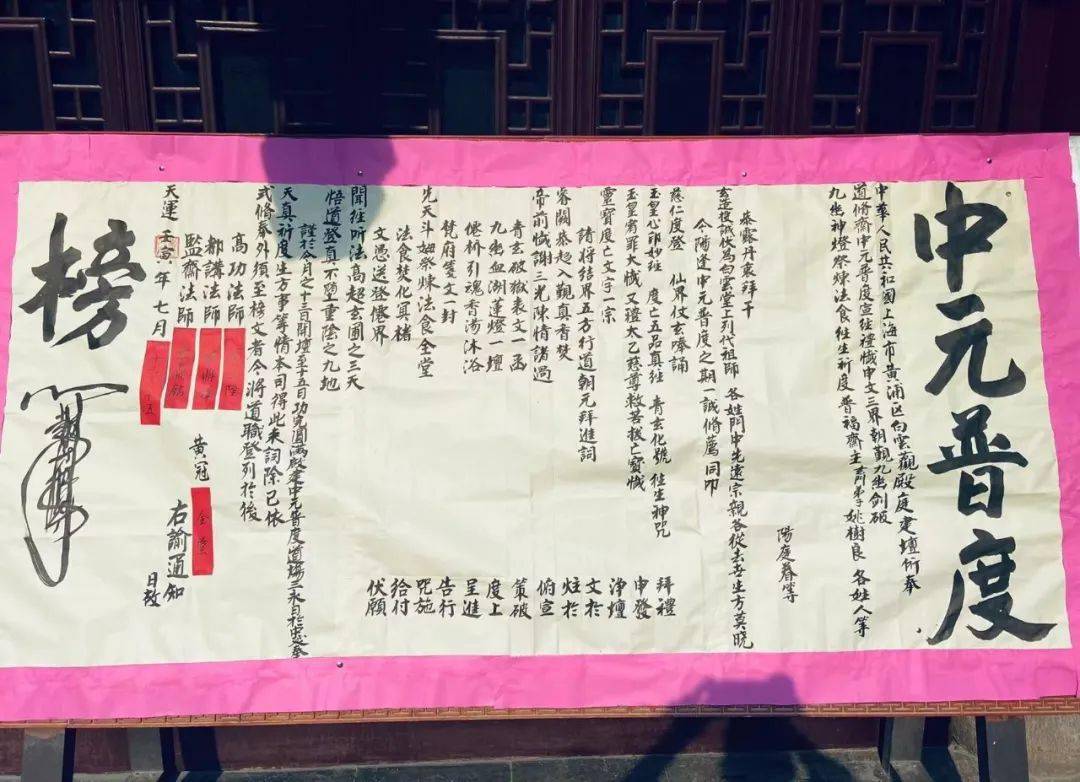 中元普度
中華人民共和國上海市黄浦区白雲觀殿庭建壇衍奉
道修齋中元普度宣经禮懺申文三界朝觐九幽劍破
九幽神燈祭煉法食往生祈度普福齋主 姚樹良 各姓人等
陽庭眷等
恭露丹衷拜干
玄造投誠伏為白雲堂上列代祖師 各姓門中先遠宗親各從去世生方莫曉
今陽逢中元普度之期一誠脩薦同叩
慈仁度登 仙界仗玄嗪誦 拜禮
玉皇心印妙经 度亡五品真经 青玄化號 往生神咒 申發
玉皇宥罪大懺 又禮太乙慈尊救苦拔亡寳懺 浄壇
靈寳度亡文字一宗 文於
請將结界五方行道朝元拜進詞 炷於
睿闕恭趋入觐真香焚 俯宣
帝前懺謝三光陳情諸過 策破
青玄破獄表文一函 度上
九幽血湖蓮燈一壇 呈進
僊橋引魂香湯沐浴 告行
梵府箋文一封 咒施
先天斗姆祭煉法食全堂 给付
法食焚化冥楮 伏願
文憑送登僊界
聞经听法高超玄圃之三天
悟道登真不堕重陰之九地
謹於今月之十三日開壇至十五日功完圓满啟建中元普度道場三永日於忠奎
天真祈度生方事等情本司得此来詞除已依
式脩奉外须至榜文者今將道職登列於後
高功法師
都講法師
監齋法師
黄冠 全堂
天運壬寅年七月
右諭通知
日發
榜